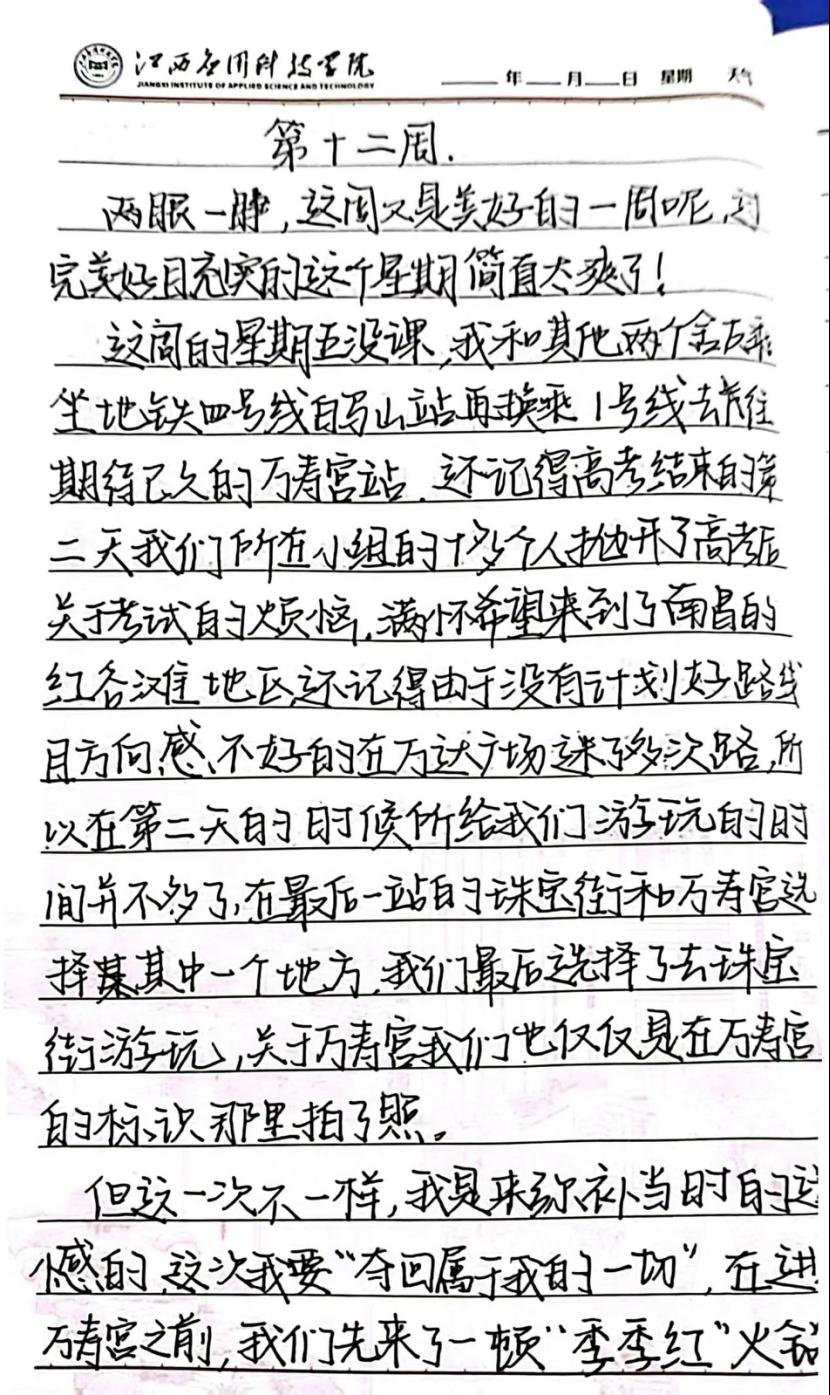 江西应用科技学院
JIANGXI INSTITUTE OF APPLIED SCIENCE AND TECHNOLOGY
年 月 日 星期 天气
第十二周.
两眼一睁,这周又是美好的一周呢,过
完美好且充实的这个星期简直太爽了!
这周的星期五没课,我和其他两个舍友乘
坐地铁四号线自马山站再换乘1号线去前往
期待已久的万寿宫站.还记得高考结束的第
二天我们所在小组的十多个人抛开了高考后
关于考试的烦恼,满怀希望来到了南昌的
红谷滩地区,还记得由于没有计划好路线
且方向感不好的在万达广场迷了多次路,所
以在第二天的时候所给我们游玩的时
间并不多了,在最后一站的珠宝街和万寿宫选
择某其中一个地方,我们最后选择了去珠宝
街游玩,关于万寿宫我们也仅仅是在万寿宫
的标识那里拍了照。
但这一次不一样,我是来弥补当时的遗
憾的,这次我要"夺回属于我的一切",在进
万寿宫之前,我们先来了一顿"季季红"火锅